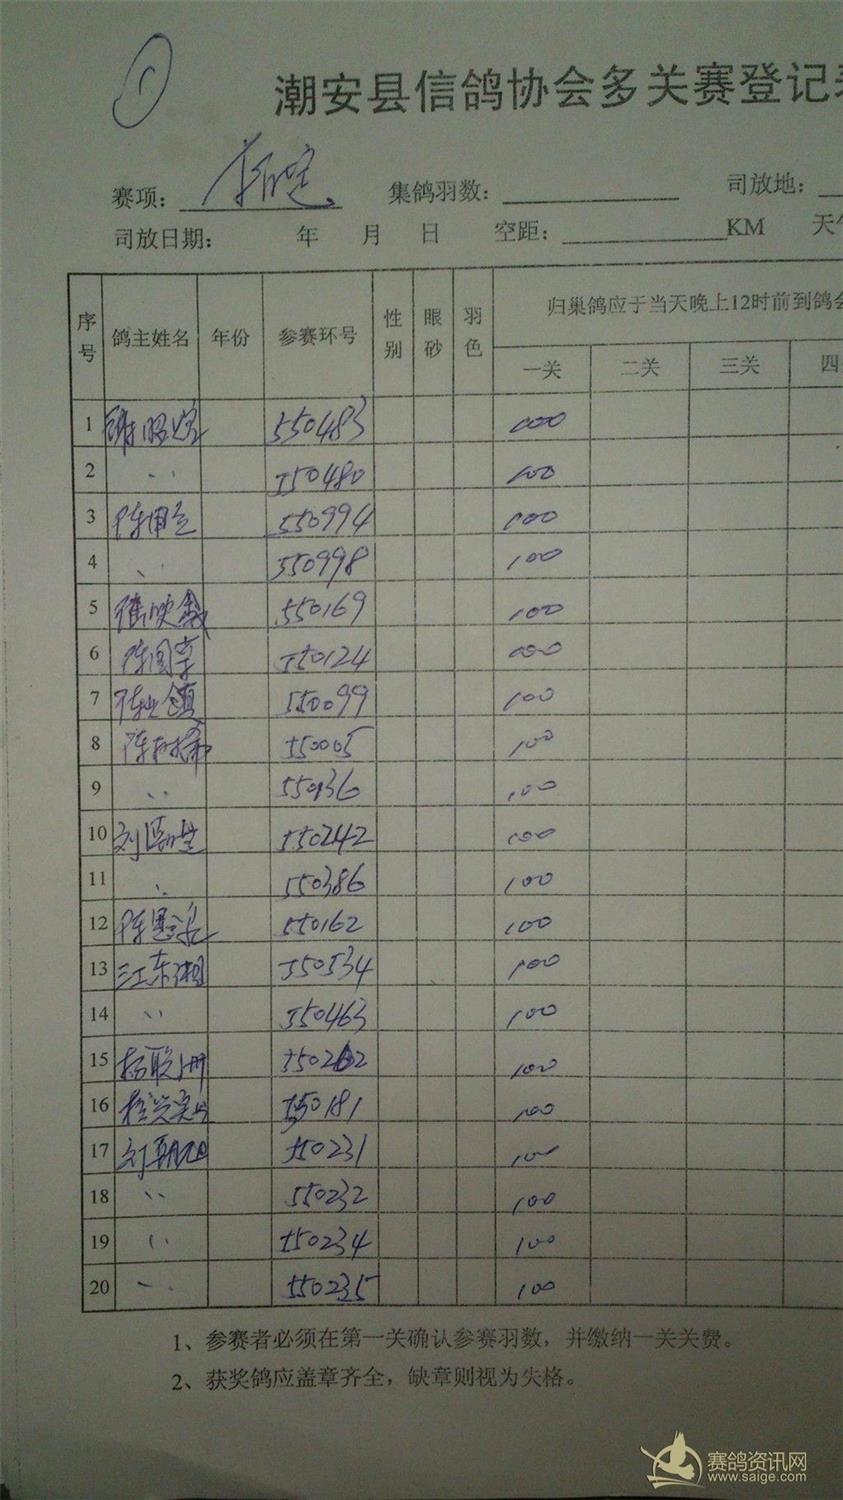 1
潮安县信鸽协会多关赛登记
赛项: 集鸽羽数: 司放地:
司放日期: 年 月 日 空距: KM 天
序号 鸽主姓名 年份 参赛环号 性别 眼砂 羽色 归巢鸽应于当天晚上12时前到鸽
一关 二关 三关 四
1 550483 100
2 〃 550480 100
3 550994 100
4 〃 550998 100
5 550169 100
6 陈国 550124 100
7 550099 100
8 550005 100
9 〃 550936 100
10 刘 550242 100
11 〃 550386 100
12 陈 550162 100
13 江东湘 550534 100
14 〃 550463 100
15 杨联 550262 100
16 550181 100
17 刘 550231 100
18 〃 550232 100
19 〃 550234 100
20 〃 550235 100
1、参赛者必须在第一关确认参赛羽数，并缴纳一关关费。
2、获奖鸽应盖章齐全，缺章则视为失格。
赛鸽资讯网
www.saige.com